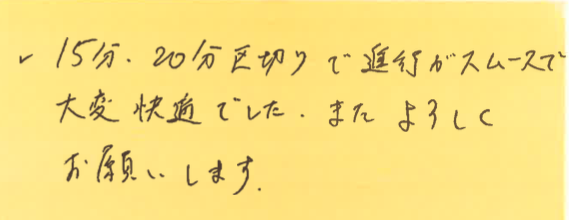 ✓ 15分.20分区切りで進行がスムースで
大変快適でした.またよろしく
お願いします.